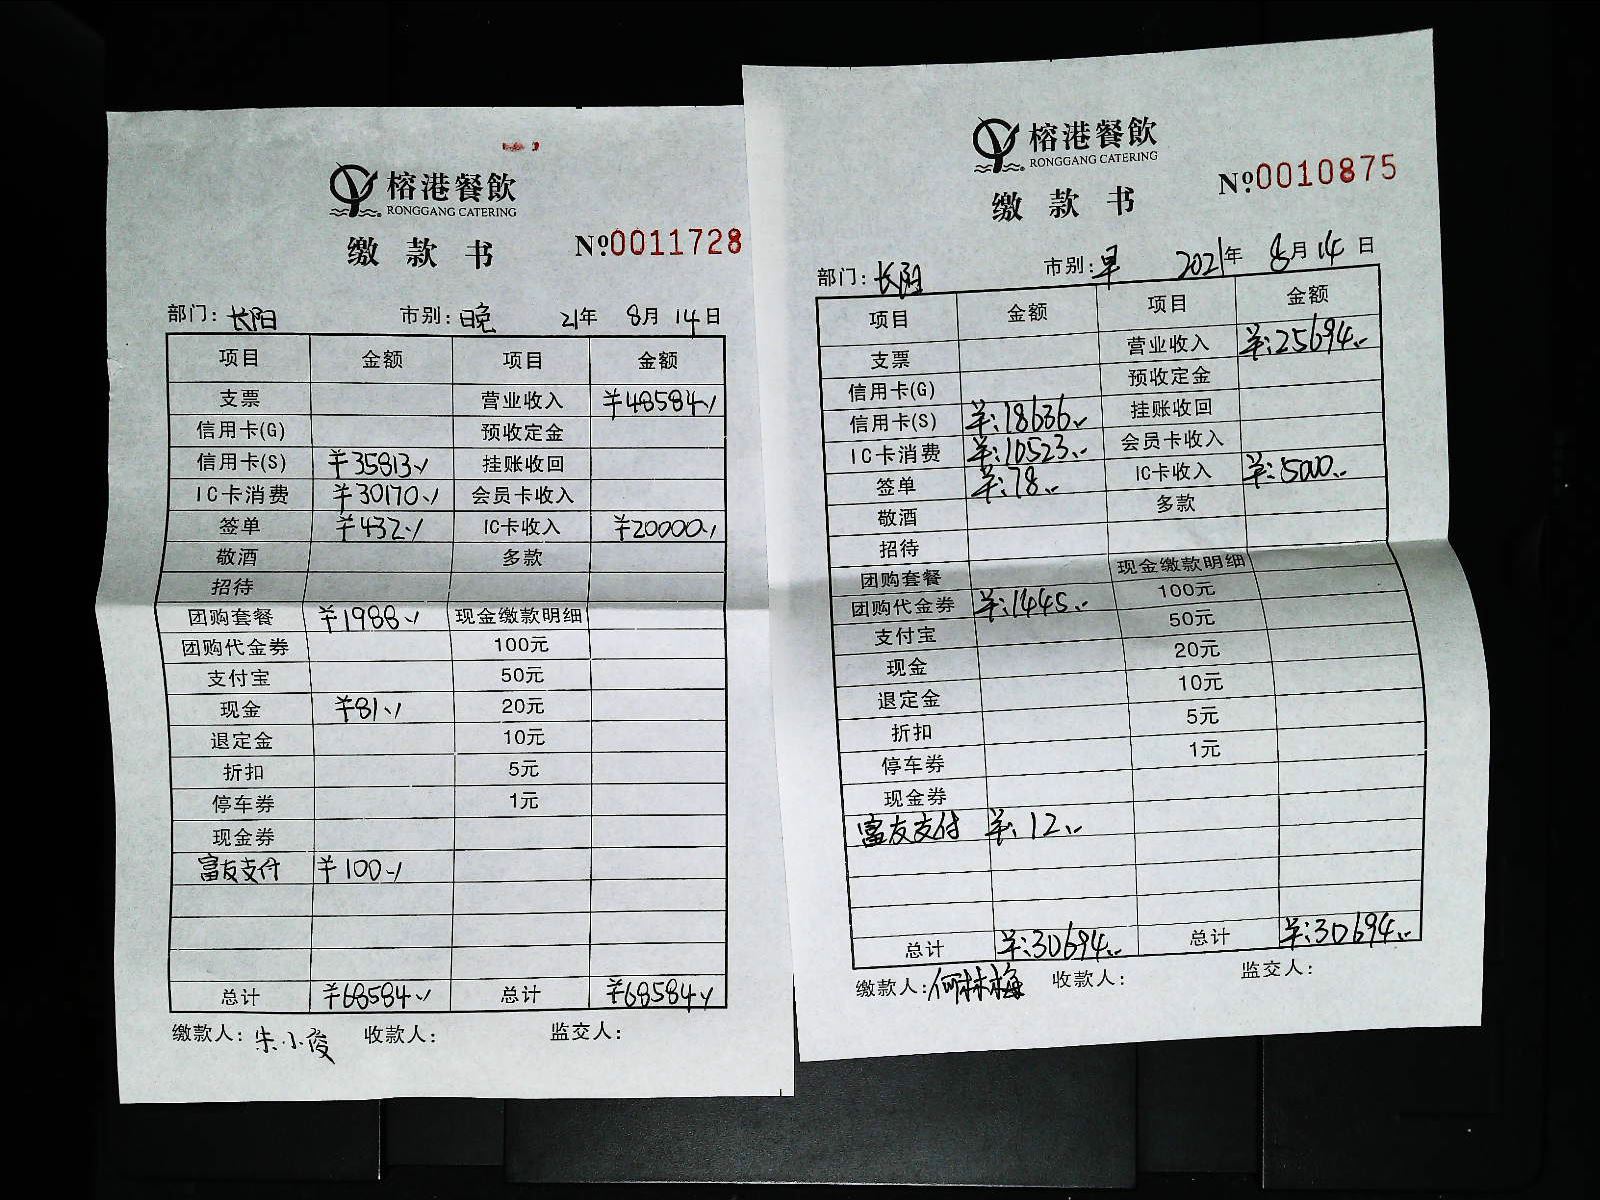 榕港餐飲
RONGGANG CATERING
缴款书 №0011728
部门: 长阳 市别: 晚 21年 8月 14日
项目 金额 项目 金额
支票 营业收入 ¥48584.-
信用卡(G) 预收定金
信用卡(S) ¥35813.- 挂账收回
IC卡消费 ¥30170.- 会员卡收入
签单 ¥432.- IC卡收入 ¥20000.-
敬酒 多款
招待
团购套餐 ¥1988.- 现金缴款明细
团购代金券 100元
支付宝 50元
现金 ¥81.- 20元
退定金 10元
折扣 5元
停车券 1元
现金券
富友支付 ¥100.-
总计 ¥68584.- 总计 ¥68584.-
缴款人: 朱小俊 收款人: 监交人:
榕港餐飲
RONGGANG CATERING
缴款书 №0010875
部门: 长阳 市别: 早 2021年 8月 14日
项目 金额 项目 金额
支票 营业收入 ¥:25694.-
信用卡(G) 预收定金
信用卡(S) ¥:18636.- 挂账收回
IC卡消费 ¥:10523.- 会员卡收入
签单 ¥:78.- IC卡收入 ¥:5000.-
敬酒 多款
招待
团购套餐 现金缴款明细
团购代金券 ¥:1445.- 100元
支付宝 50元
现金 20元
退定金 10元
折扣 5元
停车券 1元
现金券
富友支付 ¥:12.-
总计 ¥:30694.- 总计 ¥:30694.-
缴款人: 何林梅 收款人: 监交人: